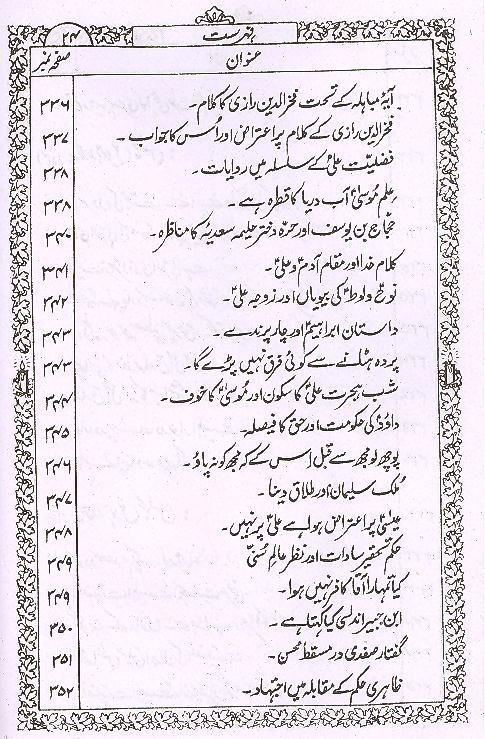 ۲۴ فہرست
صفحہ نمبر عنوان
آیۂ مباہلہ کے تحت فخر الدین رازی کا کلام۔ ۳۳۶
فخر الدین رازی کے کلام پر اعتراض اور اُس کا جواب۔ ۳۳۷
فضیلت علیؑ کے سلسلہ میں روایات۔ ۳۳۸
علم موسیٰؑ آب دریا کا قطرہ ہے۔ ۳۳۸
حجاج بن یوسف اور حرہ دختر حلیمہ سعدیہ کا مناظرہ۔ ۳۴۰
کلام خدا اور مقام آدمؑ و علیؑ۔ ۳۴۱
نوحؑ و لوطؑ کی بیویاں اور زوجہ علیؑ۔ ۳۴۲
داستان ابراہیمؑ اور چار پرندے۔ ۳۴۳
پردہ ہٹانے سے کوئی فرق نہیں پڑے گا۔ ۳۴۳
شب ہجرت علیؑ کا سکون اور موسیٰؑ کا خوف۔ ۳۴۴
داؤدؑ کی حکومت اور حق کا فیصلہ۔ ۳۴۵
پوچھ لو مجھ سے قبل اس کے کہ مجھ کو نہ پاؤ۔ ۳۴۶
مُلک سلیمانؑ اور طلاق دنیا۔ ۳۴۷
عیسیٰؑ پر اعتراض ہوا ہے علیؑ پر نہیں۔ ۳۴۸
حکم تحقیر سادات اور نظر عالم سُنّی ۳۴۹
کیا تمہارا آقا کافر نہیں ہوا۔ ۳۴۹
ابن جبیر اندلسی کیا کہتا ہے۔ ۳۵۰
گفتار صفدی در مسقط محسن۔ ۳۵۱
ظاہری حکم کے مقابلہ میں اجتہاد۔ ۳۵۲